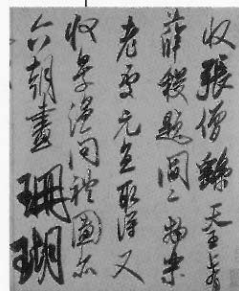 收張僧繇天王上有
薛稷題閻二物樂
老處元直取得又
收景溫問禮圖亦
六朝畫珊瑚